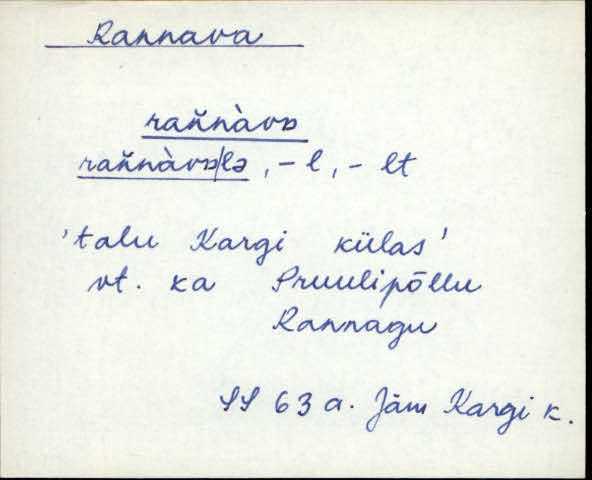 Rannava
rańnàvɒ
rańnàvɒ|lə, - l, - lt
'talu Kargi külas'
vt. ka Pruulipõllu
Rannagu
SS 63 a. Jäm Kargi k.